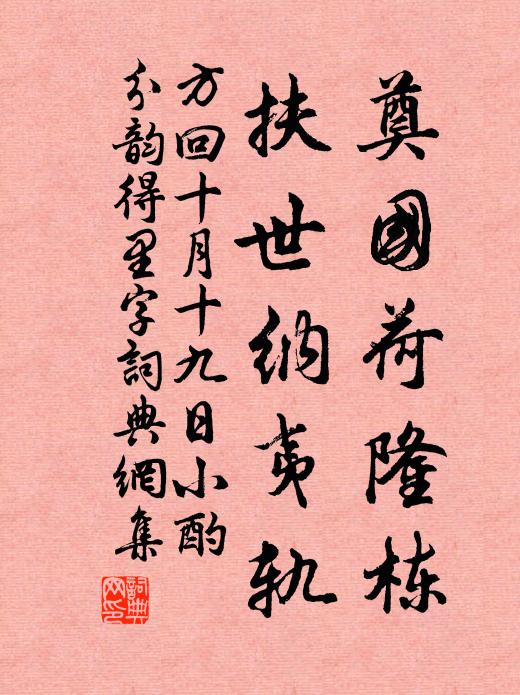 奠國荷隆栋
扶世纳夷轨
方回十月十九日小酌
分韵得里字詞典網集
詞典網印